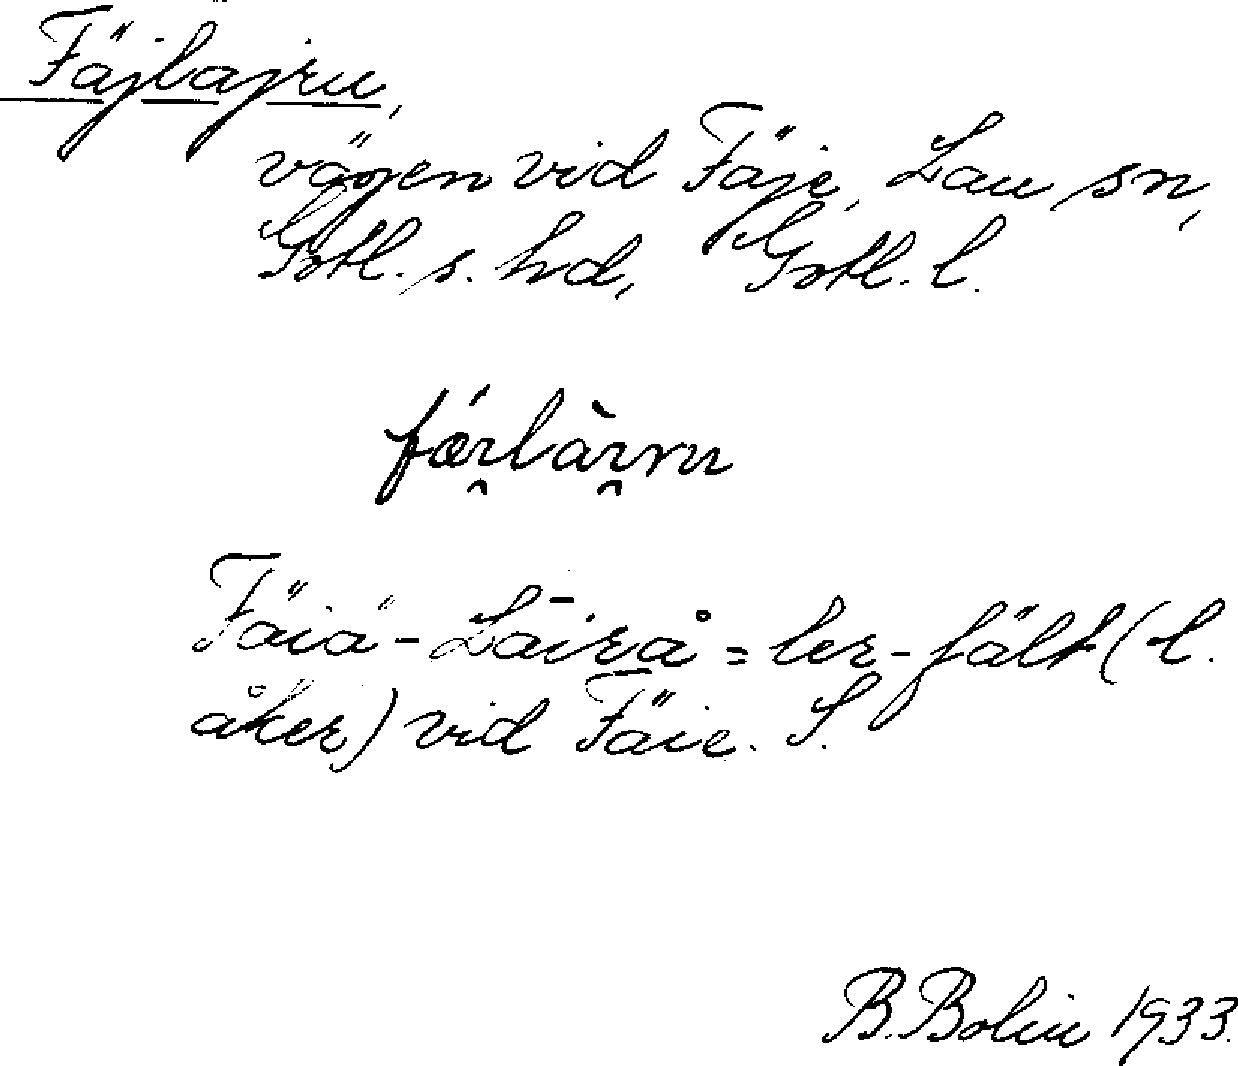 Fäjlajru,
vägen vid Fäje, Lau sn,
Gotl. s. hd, Gotl. l.
Fäiä-Lāirå = ler-fält (l.
åker) vid Fäie. S.
B. Bolin 1933.